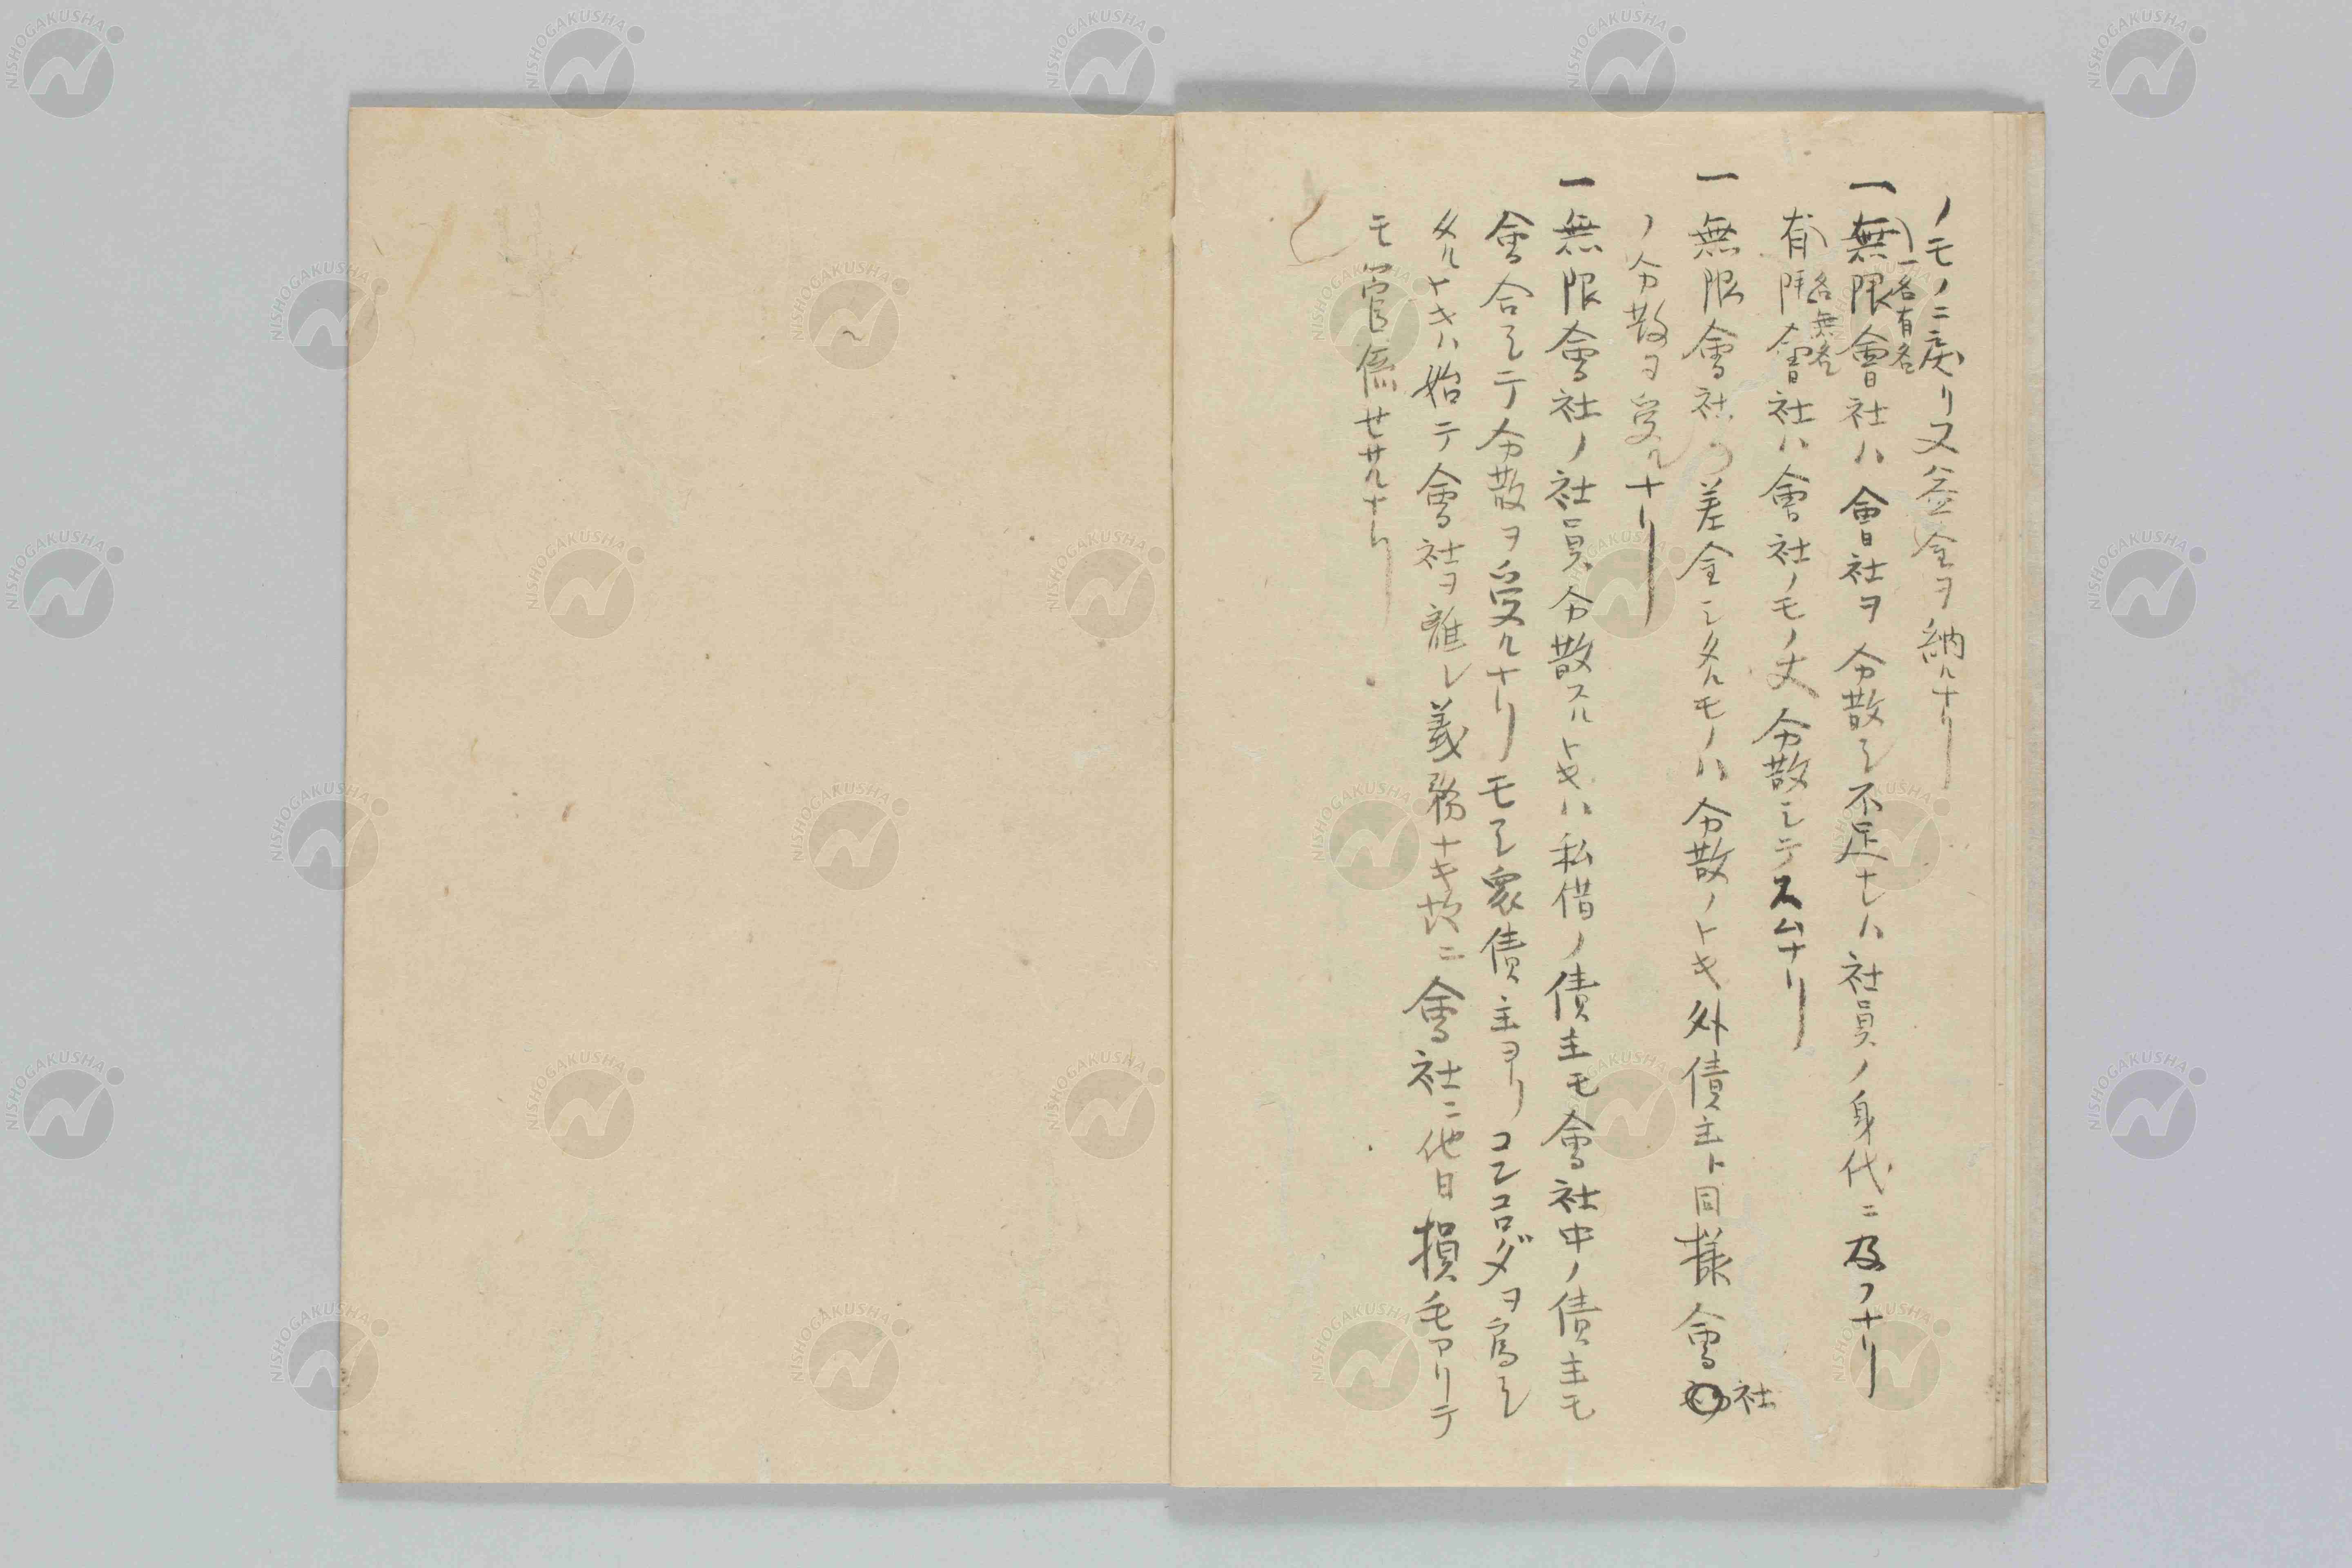 ノモノニ戻リ又益金ヲ納ルナリ
一無限會社ハ會社ヲ分散シ不足ナレハ社員ノ身代ニ及フナリ
一名有名
有限會社ハ會社ノモノ丈分散シテスムナリ
名無名
一無限會社ノ差金シタルモノハ分散ノトキ外債主ト同様會社
ノ分散ヲ受ルナリ
一無限會社ノ社員分散スルトキハ私借ノ債主モ會社中ノ債主モ
會合シテ分散ヲ受ルナリモシ衆債主ヨリコンコロダヲ為シ
タルトキハ始テ會社ヲ離レ義務ナキ故ニ會社ニ他日損毛アリテ
モ管係セサルナリ
NISHOGAKUSHA